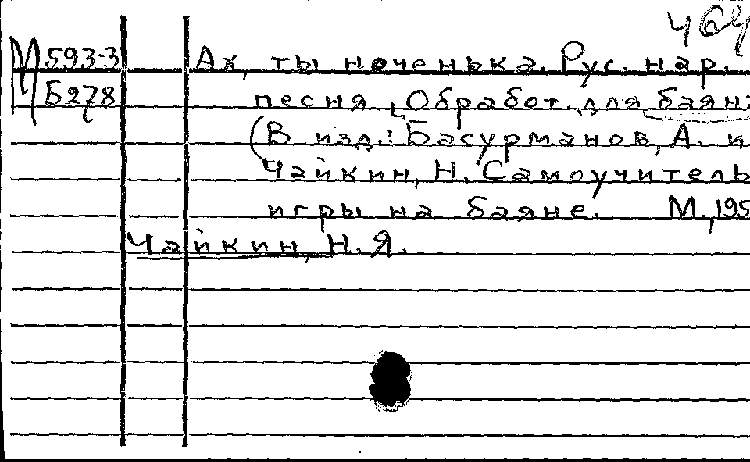 464
М 593-3 Ах, ты ноченька. Рус. нар.
Б278 песня. Обработ. для баян.
(В изд.: Басурманов, А. и
Чайкин, Н. Самоучитель
игры на баяне. М., 195
Чайкин, Н.Я.